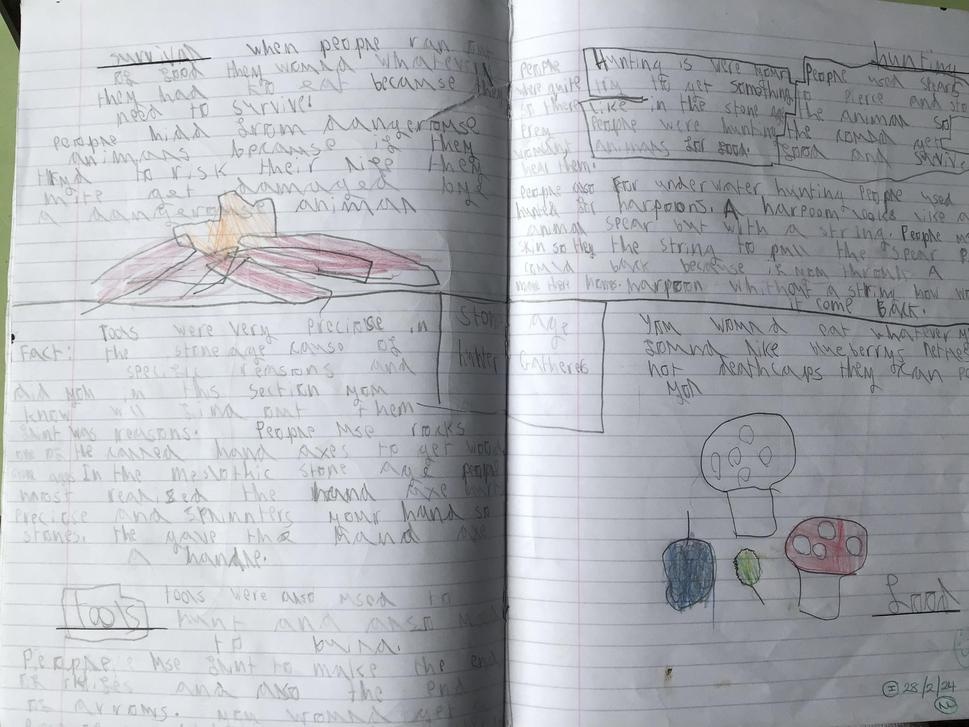 survival when people ran out
of food they would whatever
they had to eat because they
need to survive.
people hid from dangerouse
animals because if they
tryd to risk their life they
mite get damaged bye
a dangerose animal
Tools were very preciose in
the stone age cause of
specific reasons and
in this section you
will find out them
reasons. People use rocks
called hand axes to get wood
In the mesolithic stone age people
realised the hand axe
and sprinnters your hand so
the gave the hand axe
a handle.
Fact:
did you
know
flint was
one of the
stone ages
most
preciose
stones.
Tools
tools were also used to
hunt and also
to build.
People use flint to make the end
of knifes and also the end
of arrows. you would get
Stone age
hunter Gatheres
hunting
People
were quite
so there
prey
wouldnt
hear them.
Hunting is were you
try to get something
like in the stone age
People were hunting
animals for food
People used sharp
to pierce and
the animal so
the could get
food and survive
People also
hunted for
animal
skin so they
could
make their
For underwater hunting People used
harpoons. A harpoon looks like a
spear but with a string. People
the string to pull the spear
back because if you thruh A
harpoon whithout a string how
it come back.
You would eat whatever
found like blueberrys
not deathcaps they can
you
food
28/2/24